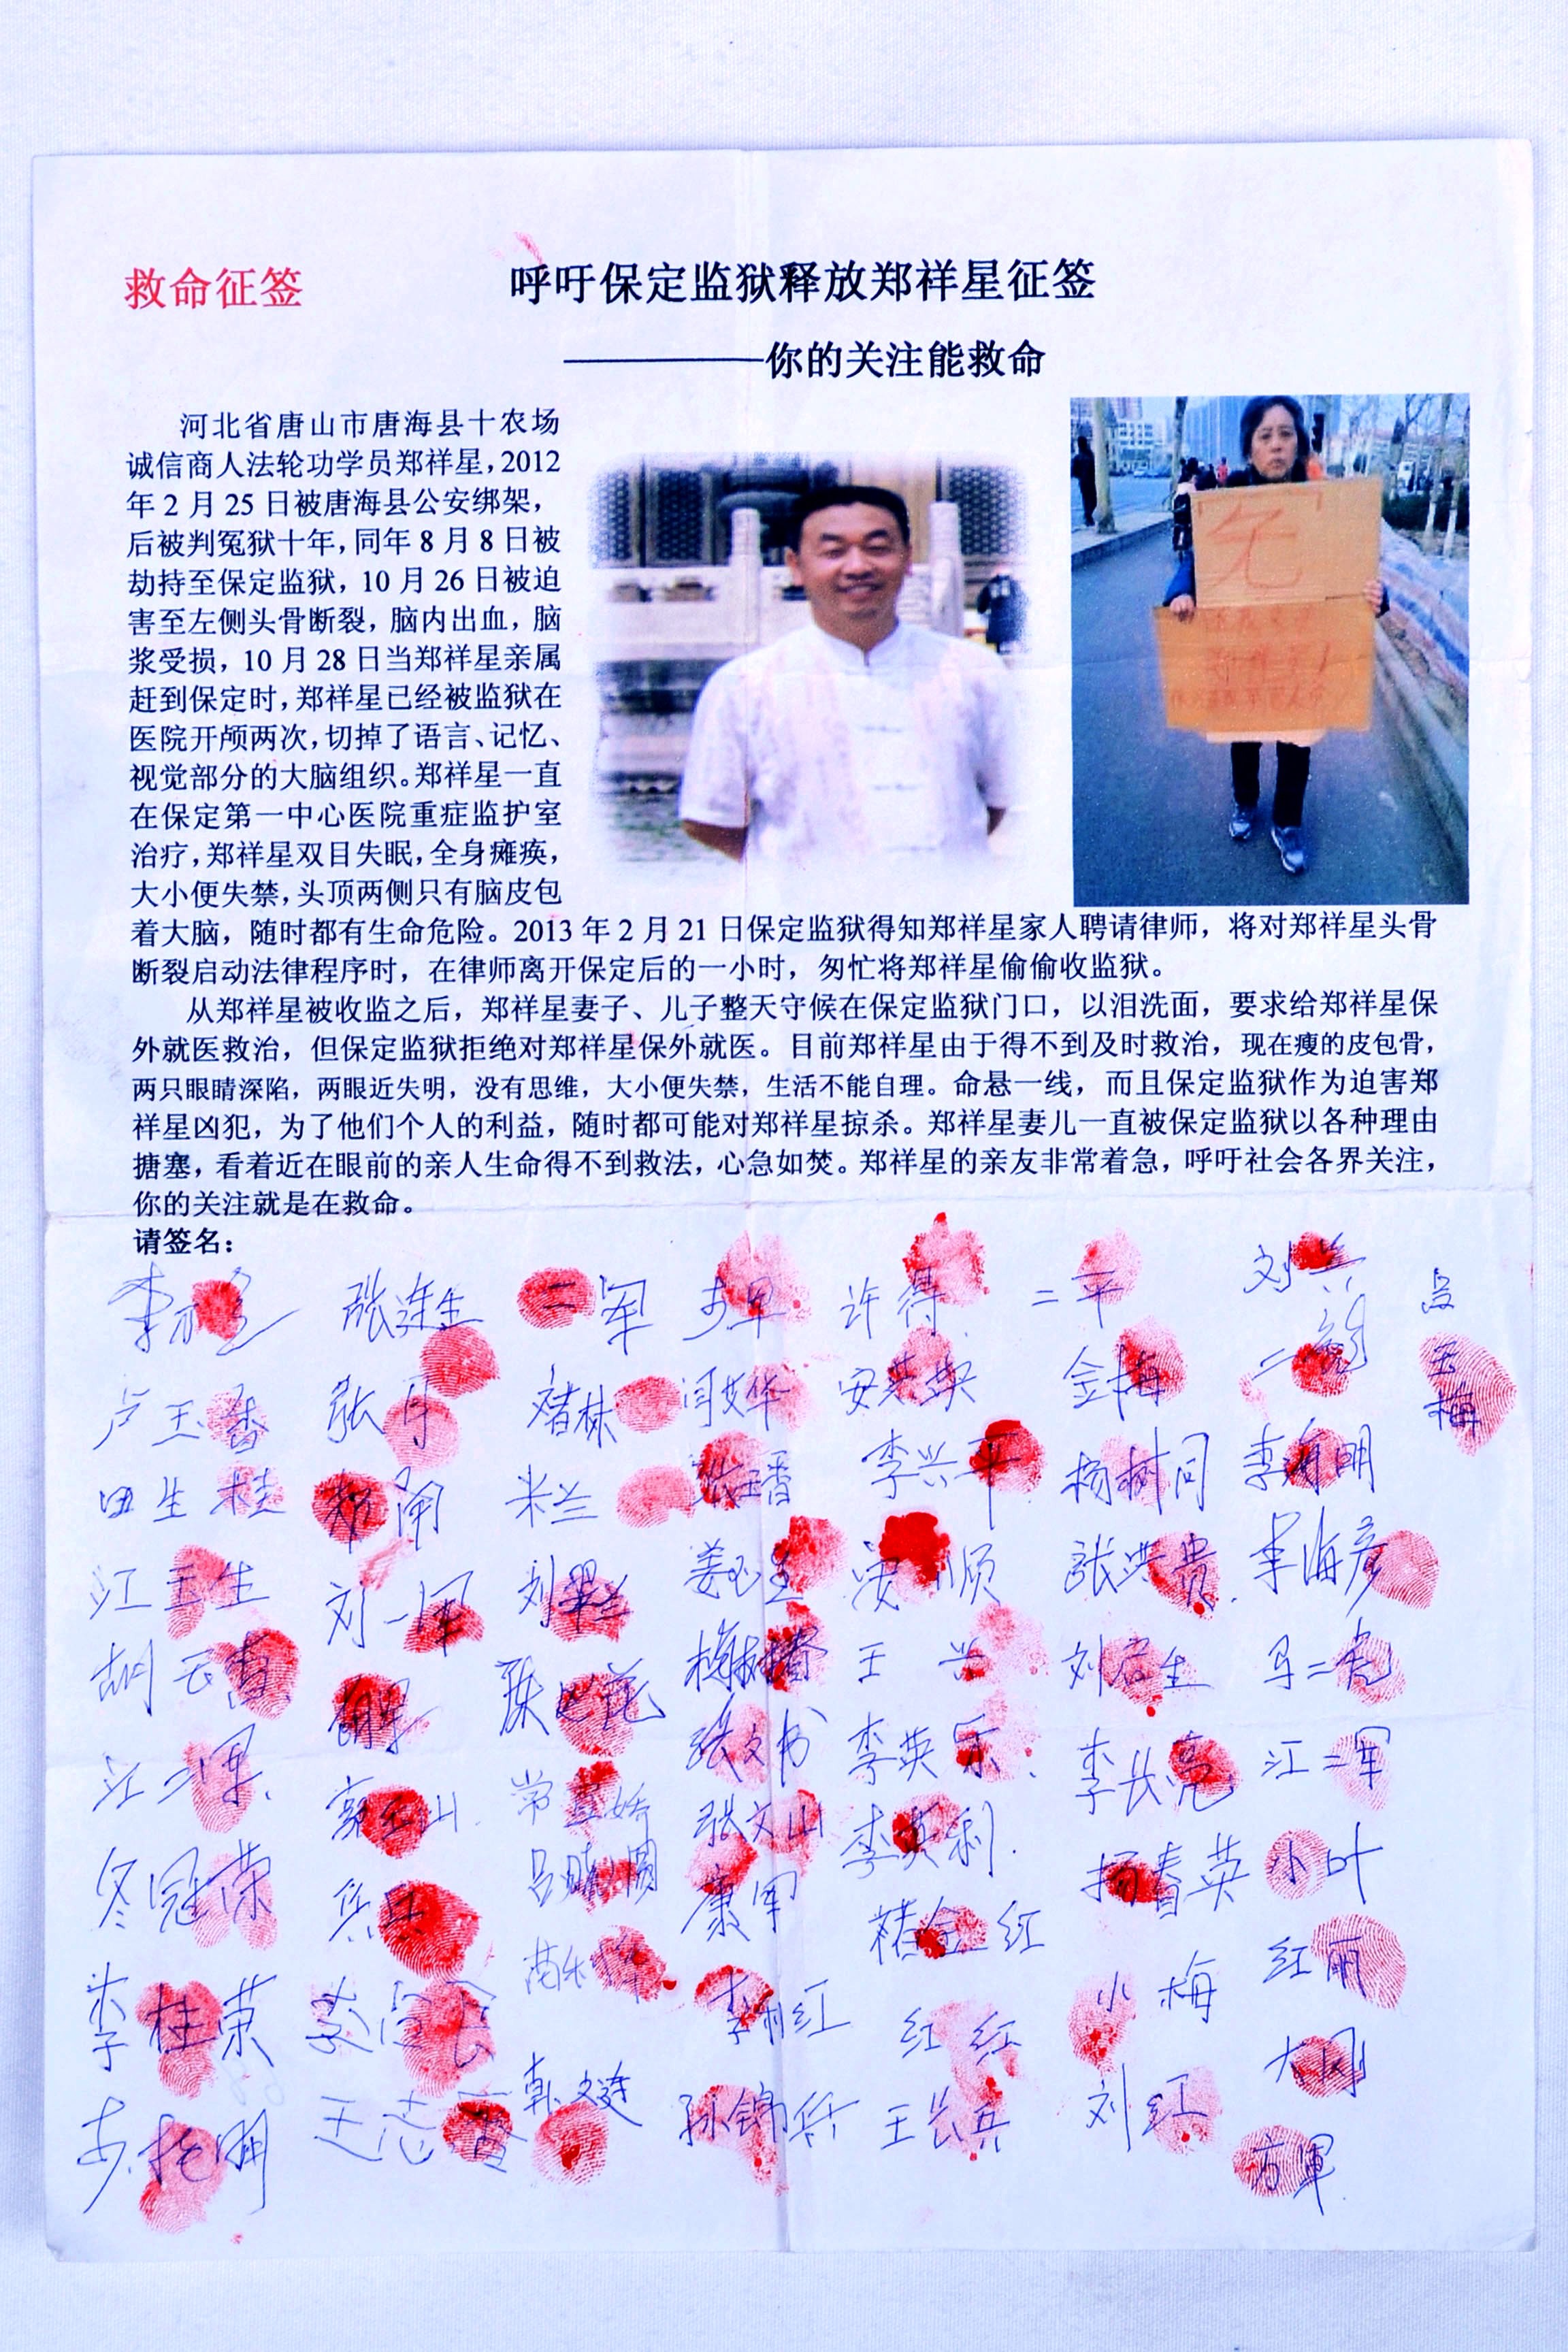 救命征签
呼吁保定监狱释放郑祥星征签
————你的关注能救命
河北省唐山市唐海县十农场
诚信商人法轮功学员郑祥星，2012
年 2 月 25 日被唐海县公安绑架，
后被判冤狱十年，同年 8 月 8 日被
劫持至保定监狱，10 月 26 日被迫
害至左侧头骨断裂，脑内出血，脑
浆受损，10 月 28 日当郑祥星亲属
赶到保定时，郑祥星已经被监狱在
医院开颅两次，切掉了语言、记忆、
视觉部分的大脑组织。郑祥星一直
在保定第一中心医院重症监护室
治疗，郑祥星双目失眠，全身瘫痪，
大小便失禁，头顶两侧只有脑皮包
着大脑，随时都有生命危险。2013 年 2 月 21 日保定监狱得知郑祥星家人聘请律师，将对郑祥星头骨
断裂启动法律程序时，在律师离开保定后的一小时，匆忙将郑祥星偷偷收监狱。
从郑祥星被收监之后，郑祥星妻子、儿子整天守候在保定监狱门口，以泪洗面，要求给郑祥星保
外就医救治，但保定监狱拒绝对郑祥星保外就医。目前郑祥星由于得不到及时救治，现在瘦的皮包骨，
两只眼睛深陷，两眼近失明，没有思维，大小便失禁，生活不能自理。命悬一线，而且保定监狱作为迫害郑
祥星凶犯，为了他们个人的利益，随时都可能对郑祥星掠杀。郑祥星妻儿一直被保定监狱以各种理由
搪塞，看着近在眼前的亲人生命得不到救法，心急如焚。郑祥星的亲友非常着急，呼吁社会各界关注，
你的关注就是在救命。
请签名：
张连生 二军 许得 二平 刘兰
卢玉香 张丹 褚林 闫艾华 安英英 金梅 吕玉梅
田生桂 米兰 张玉香 李兴平 杨树同 李海明
江玉生 刘一军 刘翠兰 姜玉兰 安顺 张洪贵 李海彦
胡云真 梅树春 王兴 刘启生 马二虎
江二军 郭玉山 张文书 李英乐 李长亮 江二军
冬冠荣 兵兵 吕晓圆 张文山 李英利 杨春英 小叶
康军 褚金红 红丽
李桂荣 李树红 红红 小梅 大刚
王志香 韩文廷 孙锦行 王兴兵 刘红 方军